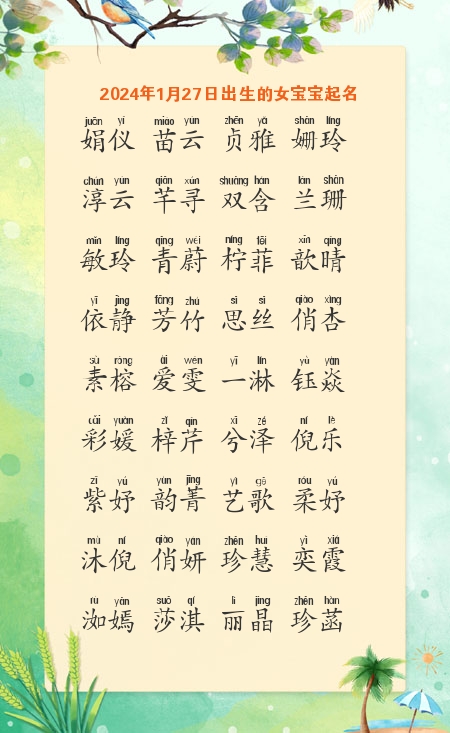 2024年1月27日出生的女宝宝起名
juān yí miáo yún zhēn yǎ shān líng
娟仪 苗云 贞雅 姗玲
chún yún qiān xún shuāng hán lán shān
淳云 芊寻 双含 兰珊
mǐn líng qīng wèi níng fēi xīn qíng
敏玲 青蔚 柠菲 歆晴
yī jìng fāng zhú sī sī qiào xìng
依静 芳竹 思丝 俏杏
sù róng ài wén yī lín yù yàn
素榕 爱雯 一淋 钰焱
cǎi yuàn zǐ qín xī zé ní lè
彩媛 梓芹 兮泽 倪乐
zǐ yú yùn jīng yì gē róu yú
紫妤 韵菁 艺歌 柔妤
mù ní qiào yán zhēn huì yì xiá
沐倪 俏妍 珍慧 奕霞
rù yān suō qí lì jīng zhēn hàn
洳嫣 莎淇 丽晶 珍菡